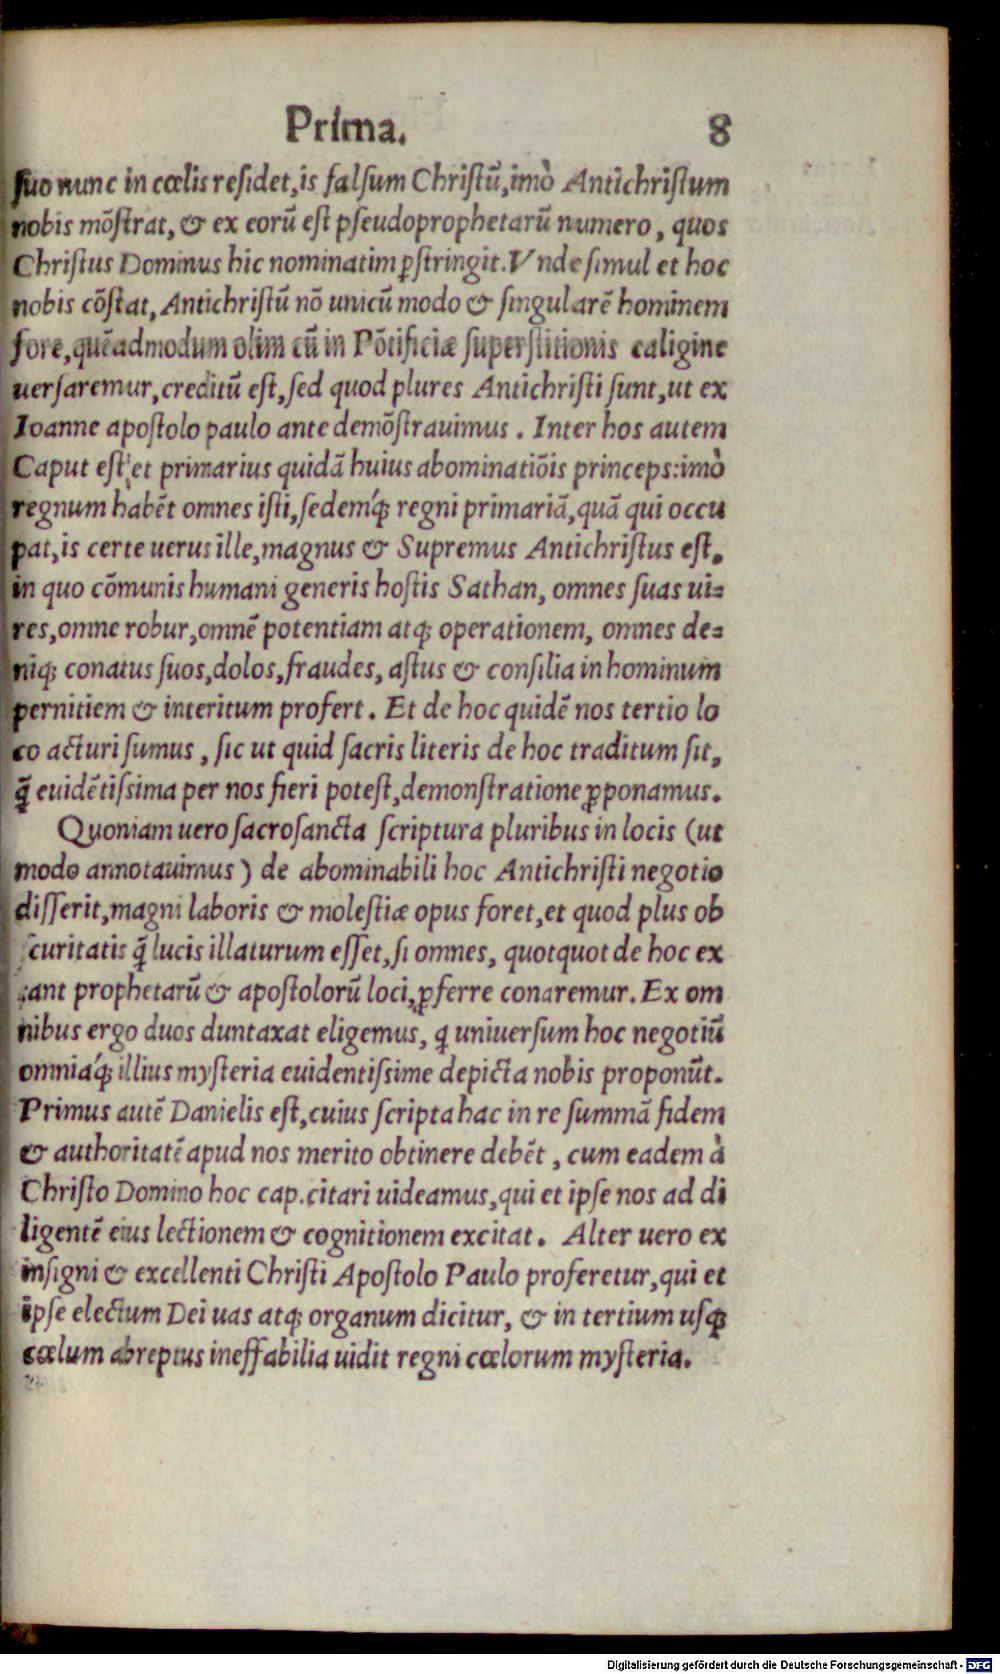 Prima. 8
suo nunc in cœlis residet, is falsum Christũ, imò Antichristum
nobis mõstrat, & ex eorũ est pseudoprophetarũ numero, quos
Christus Dominus hic nominatim ꝑstringit. Vnde simul et hoc
nobis cõstat, Antichristũ nõ unicũ modo & singularẽ hominem
fore, quẽadmodum olim cũ in Põtificiæ superstitionis caligine
uersaremur, creditũ est, sed quod plures Antichristi sunt, ut ex
Ioanne apostolo paulo ante demõstrauimus. Inter hos autem
Caput est et primarius quidã huius abominatiõis princeps: imò
regnum habẽt omnes isti, sedemq́; regni primariã, quã qui occu
pat, is certe uerus ille, magnus & Supremus Antichristus est,
in quo cõmunis humani generis hostis Sathan, omnes suas ui=
res, omne robur, omnẽ potentiam atq; operationem, omnes de=
niq; conatus suos, dolos, fraudes, astus & consilia in hominum
pernitiem & interitum profert. Et de hoc quidẽ nos tertio lo
co acturi sumus, sic ut quid sacris literis de hoc traditum sit,
q̃ euidẽtissima per nos fieri potest, demonstratione ꝓponamus.
Quoniam uero sacrosancta scriptura pluribus in locis (ut
modo annotauimus) de abominabili hoc Antichristi negotio
disserit, magni laboris & molestiæ opus foret, et quod plus ob
scuritatis q̃ lucis illaturum esset, si omnes, quotquot de hoc ex
tant prophetarũ & apostolorũ loci, ꝓferre conaremur. Ex om
nibus ergo duos duntaxat eligemus, q uniuersum hoc negotiũ
omniaq́; illius mysteria euidentissime depicta nobis proponũt.
Primus autẽ Danielis est, cuius scripta hac in re summã fidem
& authoritatẽ apud nos merito obtinere debẽt, cum eadem à
Christo Domino hoc cap. citari uideamus, qui et ipse nos ad di
ligentẽ eius lectionem & cognitionem excitat. Alter uero ex
insigni & excellenti Christi Apostolo Paulo proferetur, qui et
ipse electum Dei uas atq; organum dicitur, & in tertium usq;
cœlum abreptus ineffabilia uidit regni cœlorum mysteria.
Digitalisierung gefördert durch die Deutsche Forschungsgemeinschaft - DFG